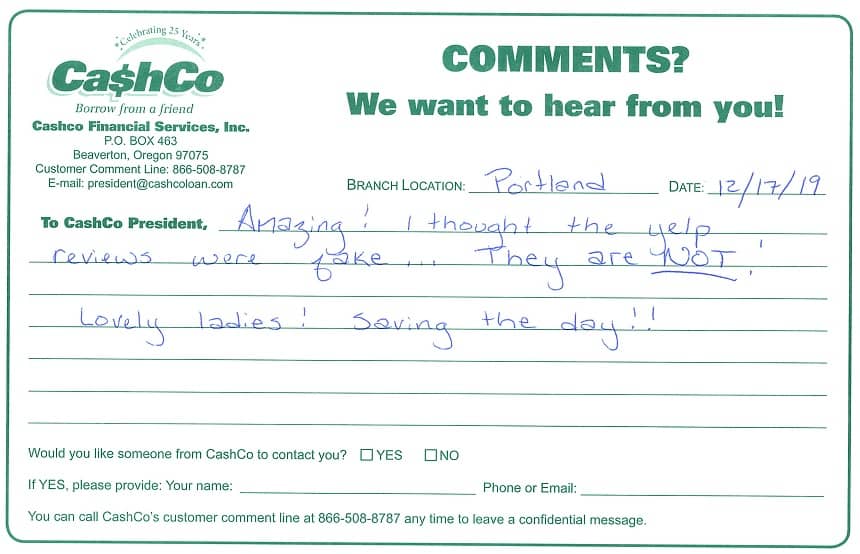 Celebrating 25 Years
Ca$hCo
Borrow from a friend
Cashco Financial Services, Inc.
P.O. BOX 463
Beaverton, Oregon 97075
Customer Comment Line: 866-508-8787
E-mail: president@cashcoloan.com
COMMENTS?
We want to hear from you!
BRANCH LOCATION: Portland DATE: 12/17/19
To CashCo President, Amazing! I thought the yelp
reviews were fake... They are NOT!
Lovely ladies! Saving the day!!
Would you like someone from CashCo to contact you? ☐ YES ☐ NO
If YES, please provide: Your name: Phone or Email:
You can call CashCo's customer comment line at 866-508-8787 any time to leave a confidential message.